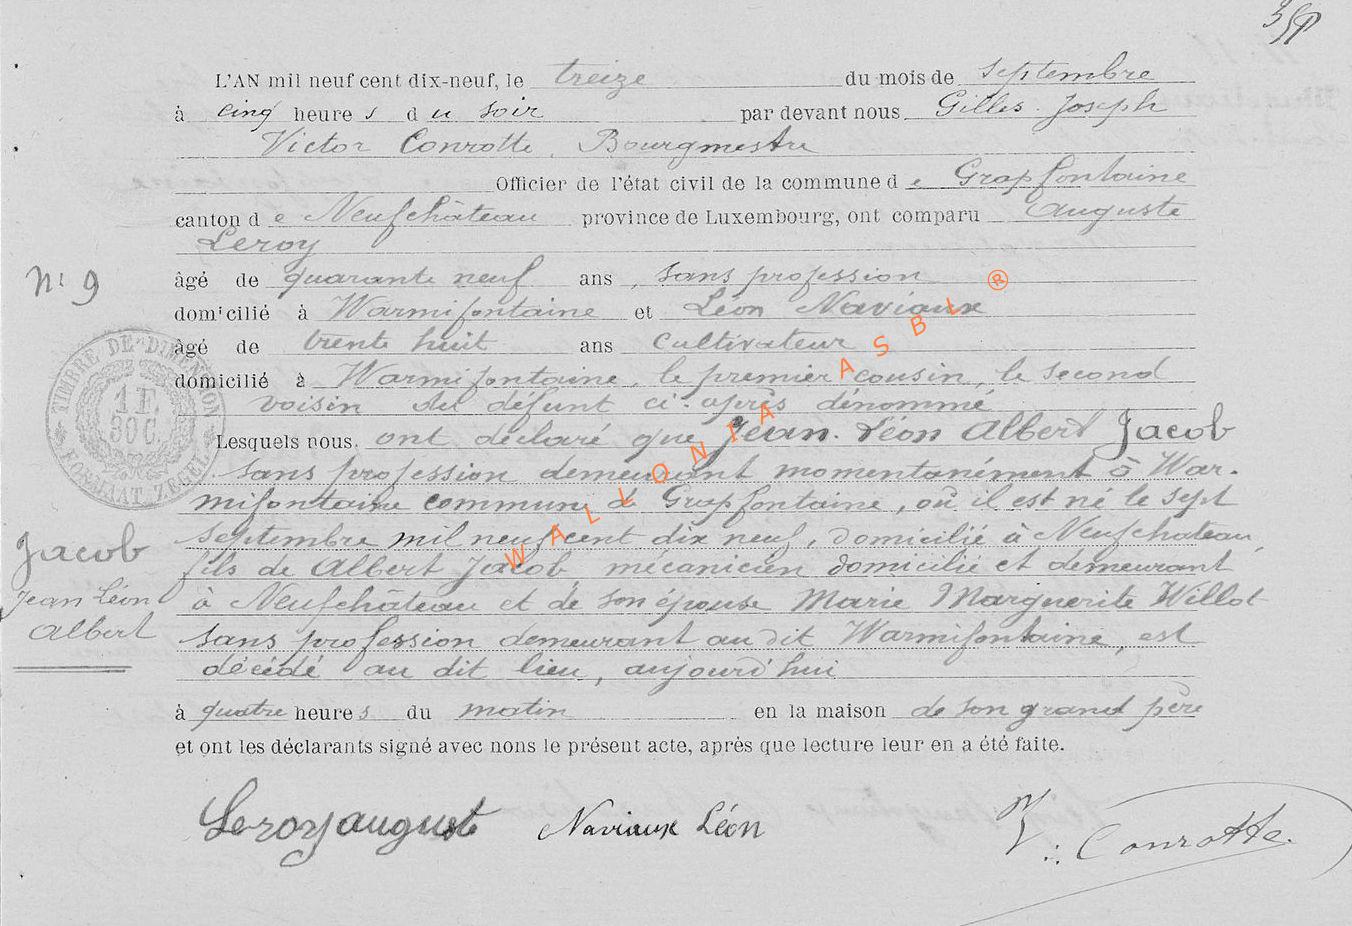 L'AN mil neuf cent dix-neuf, le treize du mois de septembre
à cinq heures du soir par devant nous Gilles Joseph
Victor Conrotte, Bourgmestre
Officier de l'état civil de la commune de Grapfontaine
canton de Neufchâteau province de Luxembourg, ont comparu Auguste
Leroy
âgé de quarante neuf ans, sans profession
domicilié à Warmifontaine et Léon Naviaux
âgé de trente huit ans cultivateur
domicilié à Warmifontaine, le premier cousin, le second
voisin du défunt ci-après dénommé
Lesquels nous ont déclaré que Jean Léon Albert Jacob
sans profession demeurant momentanément à War-
mifontaine commune de Grapfontaine, où il est né le sept
septembre mil neuf cent dix neuf, domicilié à Neufchateau,
fils de Albert Jacob mécanicien domicilié et demeurant
à Neufchâteau et de son épouse Marie Marguerite Willot
sans profession demeurant au dit Warmifontaine, est
décédé au dit lieu, aujourd'hui
à quatre heures du matin en la maison de son grand père
et ont les déclarants signé avec nons le présent acte, après que lecture leur en a été faite.
Leroy auguste Naviaux Léon V: Conrotte
N: 9
TIMBRE DE DIMENSION
1 F.
30 C.
FORMAAT ZEGEL
Jacob
Jean Léon
Albert
WALLONIA ASBL ®